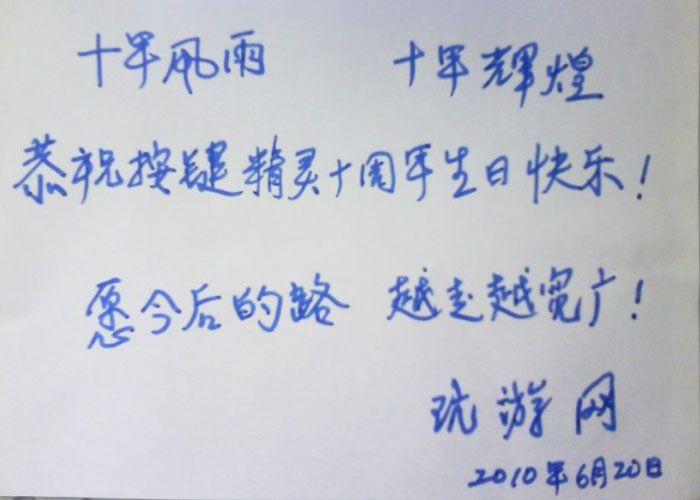 十年風雨 十年辉煌
恭祝按键精灵十周年生日快乐！
愿今后的路 越走越宽广！
玩游网
2010年6月20日